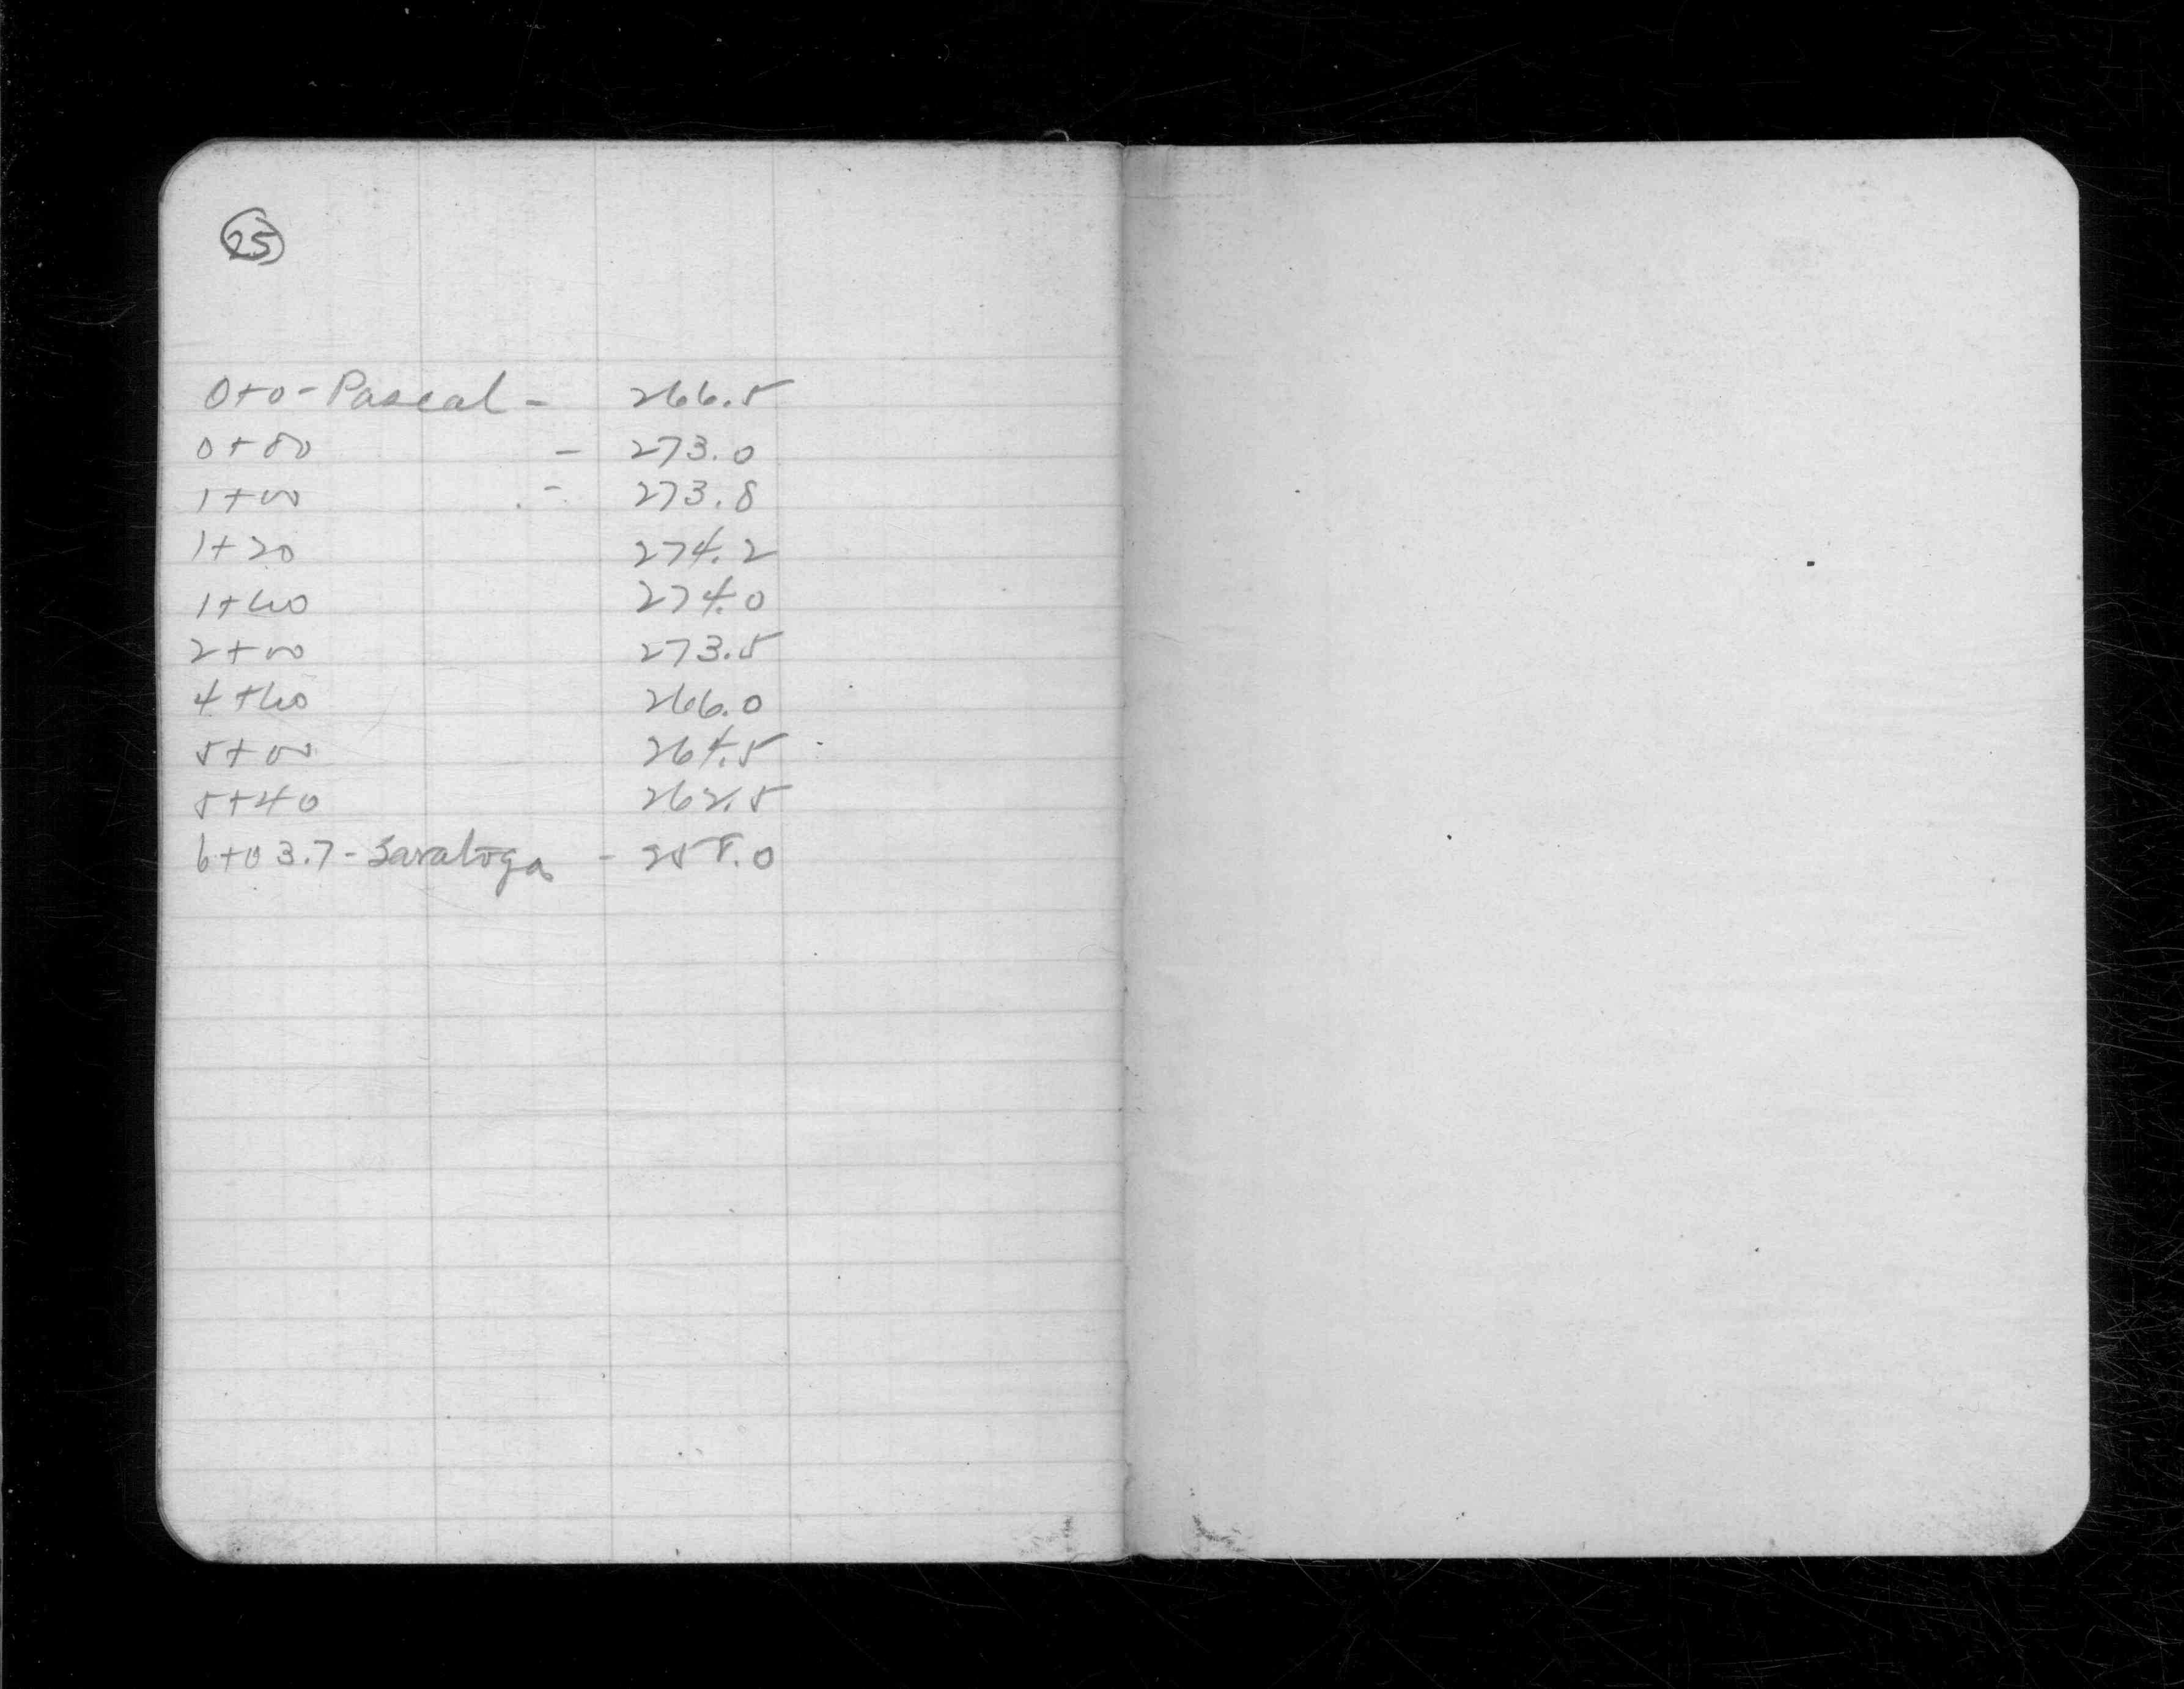 25
0+0 - Pascal - 266.5
0+80 - 273.0
1+00 - 273.8
1+20 274.2
1+40 274.0
2+00 273.5
4+40 266.0
5+00 264.5
5+40 262.5
6+03.7 - Saratoga - 258.0